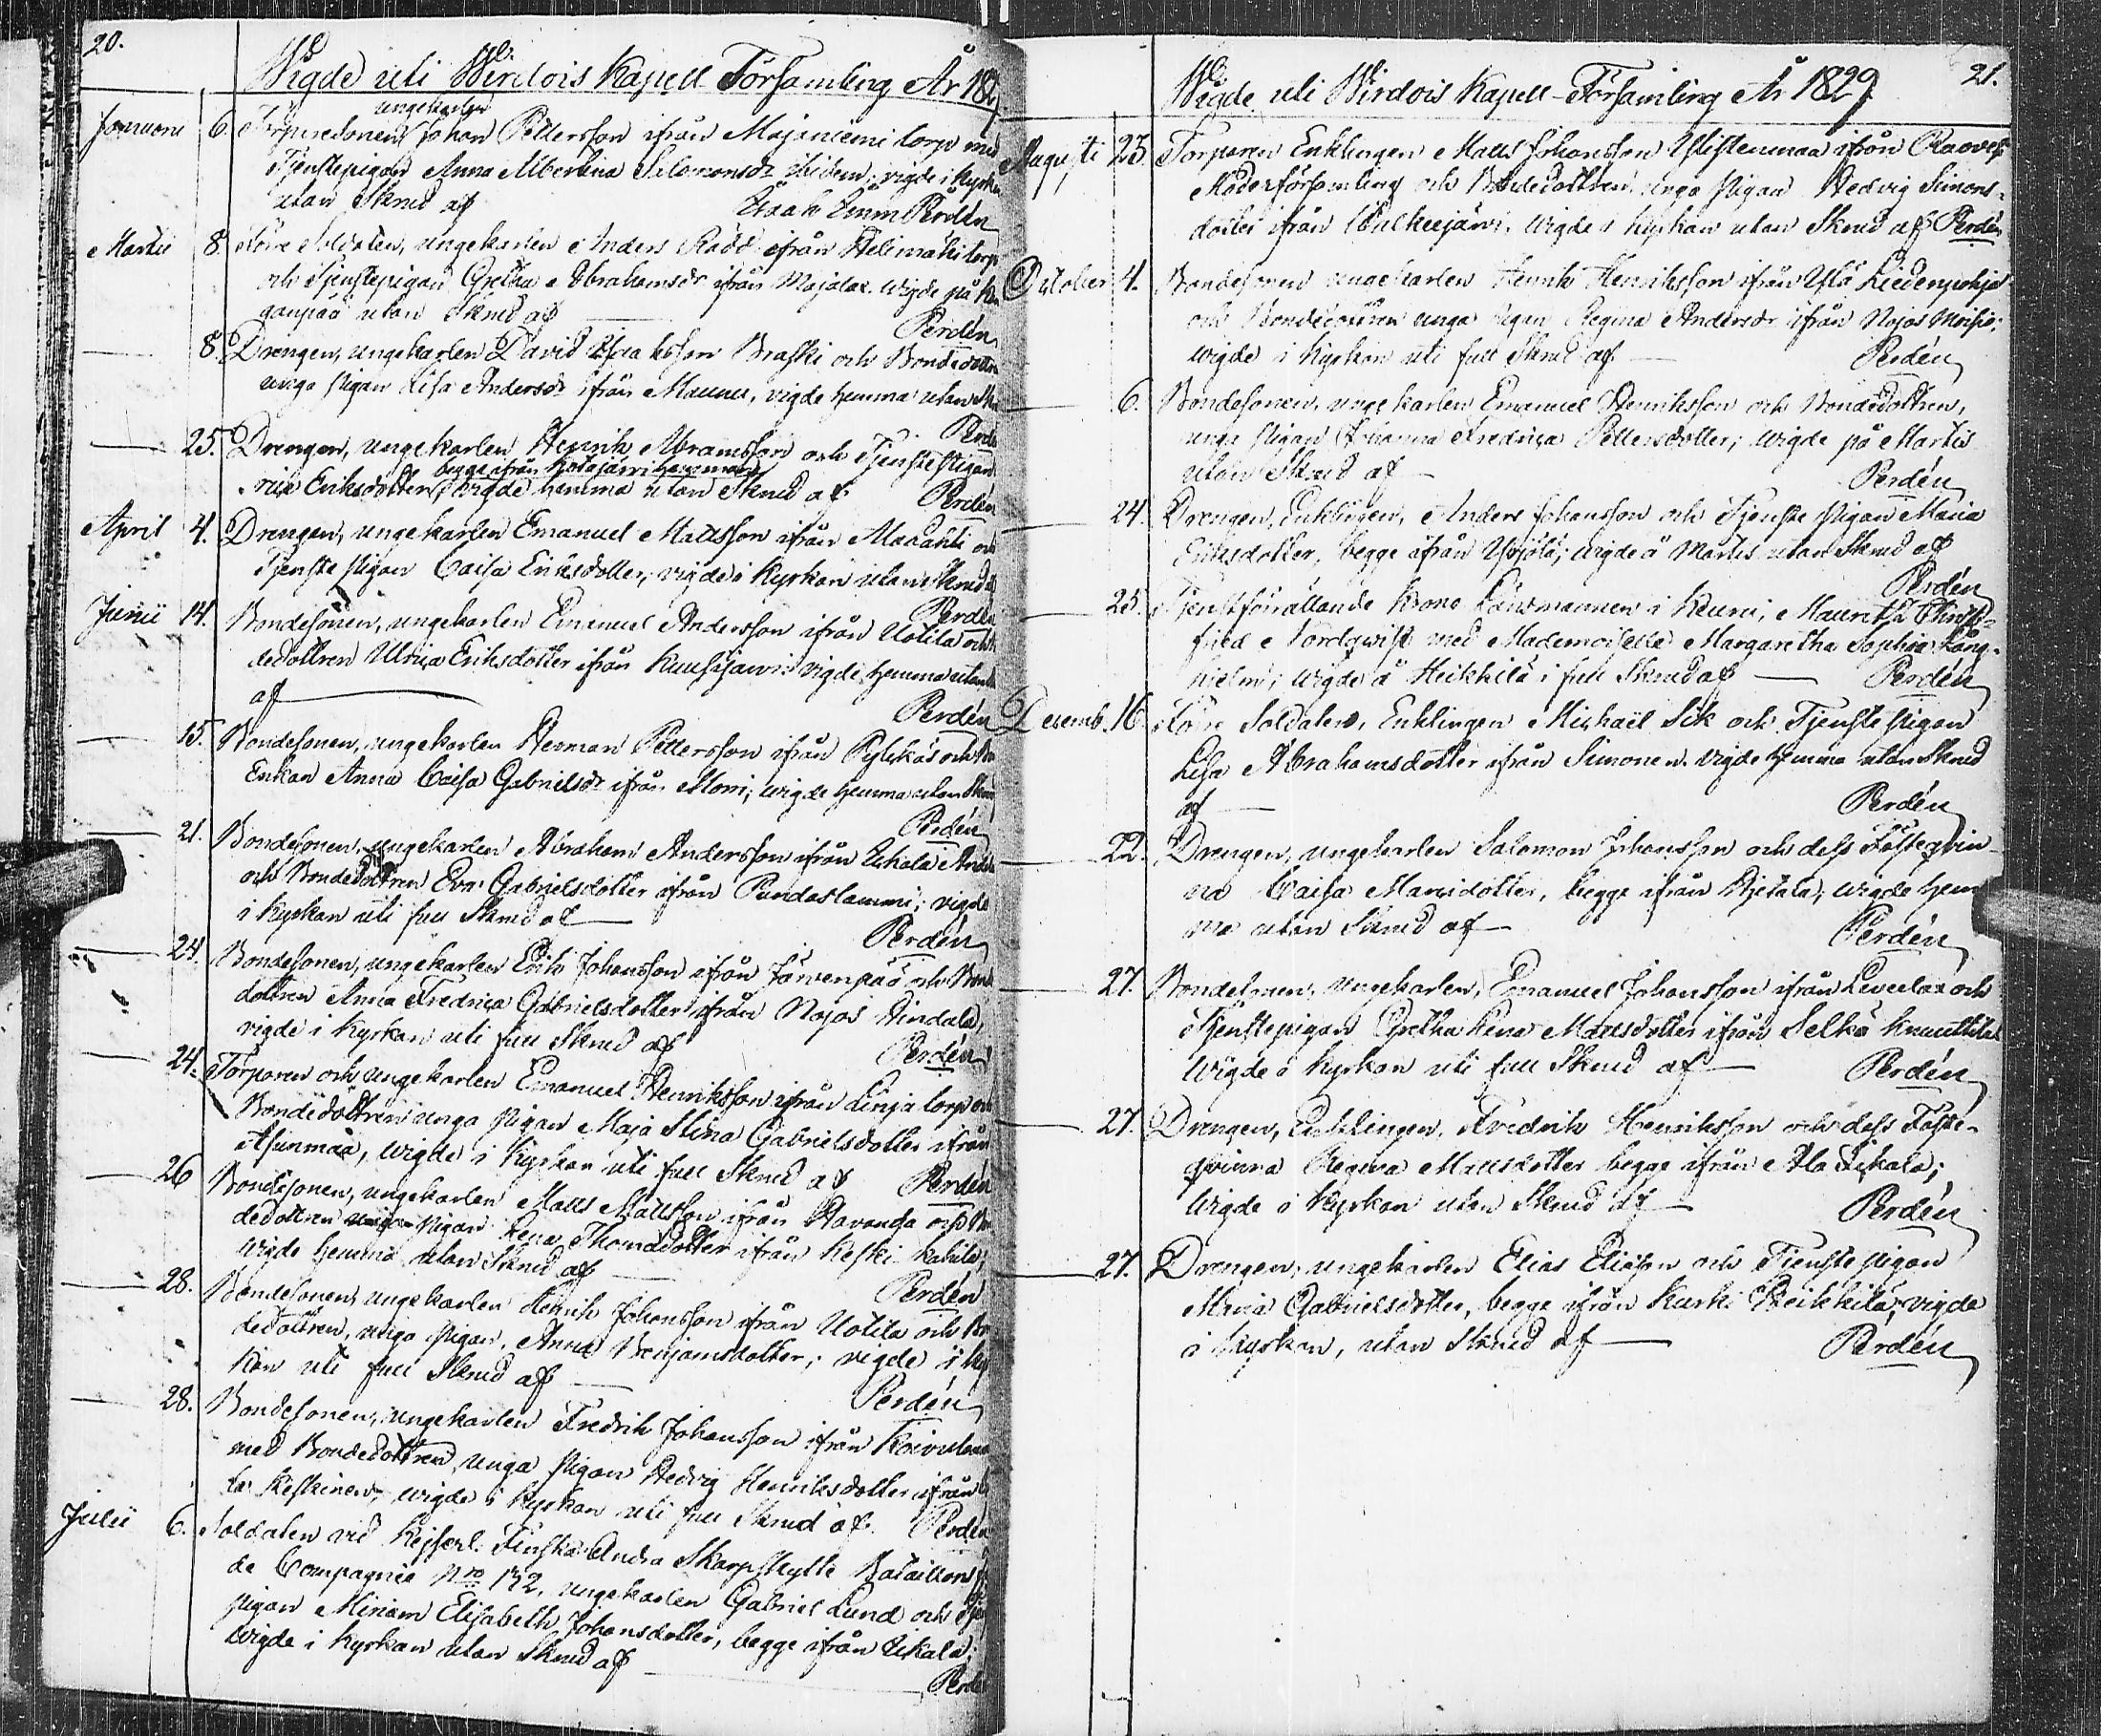 20.
Wigde uti Wirdois Kapell Församling År 182
ungekarlen
Januarii 6. Torparesonen Johan Pettersson ifrån Majaniemi torp med
Tjenstepigan Anna Albertina Salomonsdr ibidem; vigde i Kyrkan
utan Skrud af Isaak Emm Perdén
Martii 8. Förre Soldaten, ungekarlen Anders Rådd ifrån Helimäki torp
och Tjenstepigan Gretha Abrahamsdr ifrån Majalax. Wigde på
utan Skrud af Perdén
8. Drengen, ungekarlen David Isaaksson Braski och Bondedottren
unga pigan Lisa Andersdr ifrån Maunu, vigde hemma utan
Perdén
25. Drengen, ungekarlen Henrik Abramsson och Tjenstepigan
begge ifrån Kotajärvi hemman
ria Eriksdotter, wigde hemma utan Skrud af Perdén
April 4. Drengen, ungekarlen Emanuel Mattsson ifrån Maaahti och
Tjenste pigan Caisa Eriksdotter, vigde i Kyrkan utan Skrud
Perdén
Junii 14. Bondesonen, ungekarlen Emanuel Andersson ifrån Uotila och
dedottren Ulrica Eriksdotter ifrån Kuusijärvi vigde hemma utan
af Perdén
15. Bondesonen, ungekarlen Herman Pettersson ifrån Pylckäs och
Enkan Anna Caisa Gabrielsdr ifrån Morri; wigde hemma utan Skrud
Perdén
21. Bondesonen, ungekarlen Abraham Andersson ifrån Uskala
och Bondedottren Eva Gabrielsdotter ifrån Pundaslammi; vigde
i Kyrkan uti full Skrud af Perdén
24. Bondesonen, ungekarlen Erik Johansson ifrån Järvenpää och Bonde
dottren Anna Fredrica Gabrielsdotter ifrån Najos Hindala,
vigde i Kyrkan uti full Skrud af Perdén
24. Torparen och ungekarlen Emanuel Henriksson ifrån Linja torp och
Bondedottren unga pigan Maja Stina Gabrielsdotter ifrån
Asunmaa, wigde i Kyrkan uti full Skrud af Perdén
26 Bondesonen, ungekarlen Matts Mattsson ifrån Havanga och
dedottren pigan Lena Thomasdotter ifrån Keski Kahila;
Wigde hemma utan Skrud af Perdén
28. Bondesonen, ungekarlen Henrik Johansson ifrån Uotila och
dedottren, unga pigan, Anna Benjamsdotter; vigde i Kyr
kan uti full Skrud af Perdén
28. Bondesonen, ungekarlen Fredrik Johansson ifrån
med Bondedottren, unga pigan Hedvig Henriksdotter ifrån
la Keskinen, wigde i Kyrkan uti full Skrud af. Perdén
Julii 6. Soldaten vid Kejserl. Finska Andra Skarpskytte Bataillons
de Compagnie No 132, ungekarlen Gabriel Lund och
pigan Miriam Elisabeth Johansdotter, begge ifrån Uskala;
Wigde i Kyrkan utan Skrud af
Perdén
Wigde uti Wirdois Kapell-Församling År 1829. 21.
Augusti 23. Torparen Enklingen Matts Johansson Ylistenmaa ifrån Raovesi
Moderförsamling och Bondedottren unga pigan Hedvig Simons-
dotter ifrån Walkeejärvi. Wigde i Kyrkan utan Skrud af Perdén
October 4. Bondesonen ungekarlen Henrik Henriksson ifrån Ylä Liedenpohja
och Bondedottren unga pigan Regina Andersdr ifrån Najos Moisio;
wigde i Kyrkan uti full Skrud af Perdén
6. Bondesonen, ungekarlen Emanuel Henriksson och Bondedottren,
unga pigan Johanna Fredrica Pettersdotter; wigde på Martis
utan Skrud af Perdén
24. Drengen, Enklingen, Anders Johansson och Tjenste pigan Maria
Eriksdotter, begge ifrån Yrjölä; wigde å Martis utan Skrud af
Perdén
25. Tjenstförrättande Krono Länsmannen i Keuru, Maurits
fried Nordqwist med Mademoiselle Margaretha Sophia Lång-
hjelm; Wigde å Heikkilä i full Skrud af Perdén
Decemb. 16. Förre Soldaten, Enklingen Michaël Sik och Tjenste pigan
Lisa Abrahamsdotter ifrån Simonen. Vigde hemma utan Skrud
af Perdén
22. Drengen, ungekarlen Salomon Johansson och dess Fästeqvin-
na Caisa Mansdotter, begge ifrån Hjetala; wigde hem
ma utan Skrud af Perdén
27. Bondesonen, ungekarlen, Emanuel Johansson ifrån Leveelax och
Tjenstepigan Gretha Lena Mattsdotter ifrån Selkä Knuuttila
Wigde i Kyrkan uti full Skrud af Perdén
27. Drengen, Enklingen, Fredrik Henriksson och dess Fäste-
qvinna Regina Mattsdotter begge ifrån Ala Uskala;
Wigde i Kyrkan utan Skrud af Perdén
27. Drengen, ungekarlen Elias Eliasson och Tjenste pigan
Maria Gabrielsdotter, begge ifrån Kurki Heikkilä, vigde
i Kyrkan, utan Skrud af Perdén